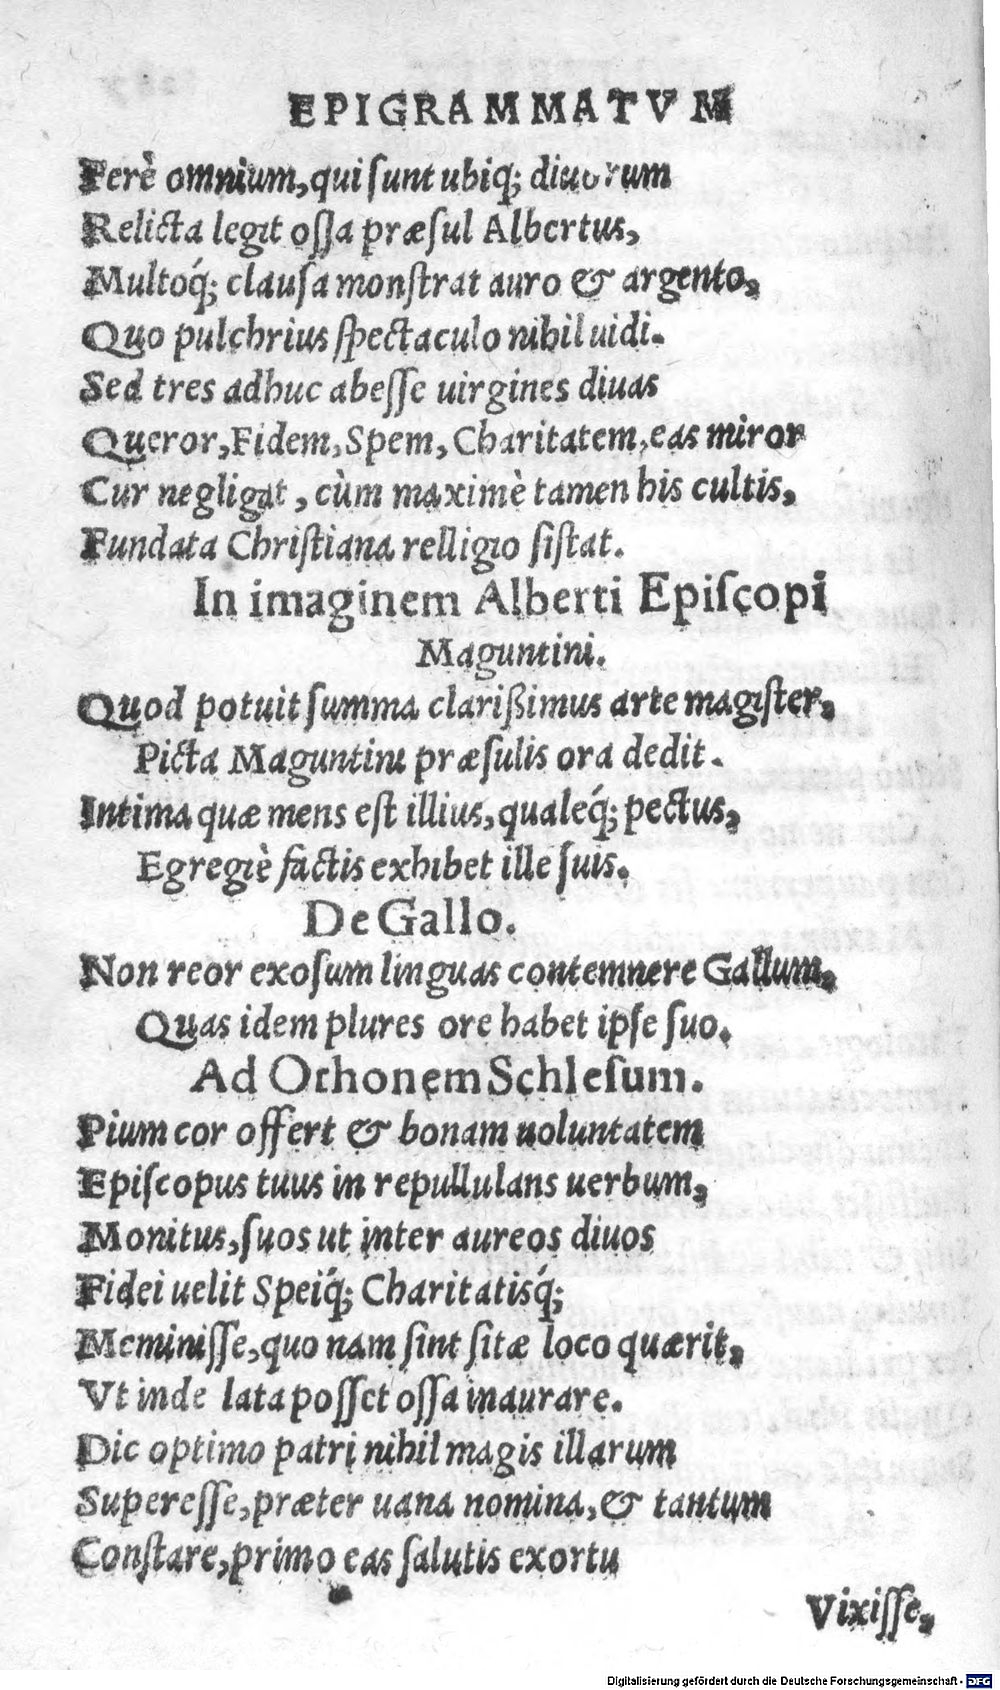 EPIGRAMMATVM
Ferè omnium, qui sunt ubiq; diuorum
Relicta legit ossa præsul Albertus,
Multoq́; clausa monstrat auro & argento,
Quo pulchrius spectaculo nihil uidi.
Sed tres adhuc abesse uirgines diuas
Queror, Fidem, Spem, Charitatem, eas miror
Cur negligat, cùm maximè tamen his cultis,
Fundata Christiana relligio sistat.
In imaginem Alberti Episcopi
Maguntini.
Quod potuit summa clarißimus arte magister,
Picta Maguntini præsulis ora dedit.
Intima quæ mens est illius, qualeq́; pectus,
Egregiè factis exhibet ille suis.
De Gallo.
Non reor exosum linguas contemnere Gallum,
Quas idem plures ore habet ipse suo.
Ad Othonem Schlesum.
Pium cor offert & bonam uoluntatem
Episcopus tuus in repullulans uerbum,
Monitus, suos ut inter aureos diuos
Fidei uelit Speiq́; Charitatisq́;
Meminisse, quo nam sint sitæ loco quærit,
Vt inde lata posset ossa inaurare.
Dic optimo patri nihil magis illarum
Superesse, præter uana nomina, & tantum
Constare, primo eas salutis exortu
Vixisse,
Digitalisierung gefördert durch die Deutsche Forschungsgemeinschaft - DFG